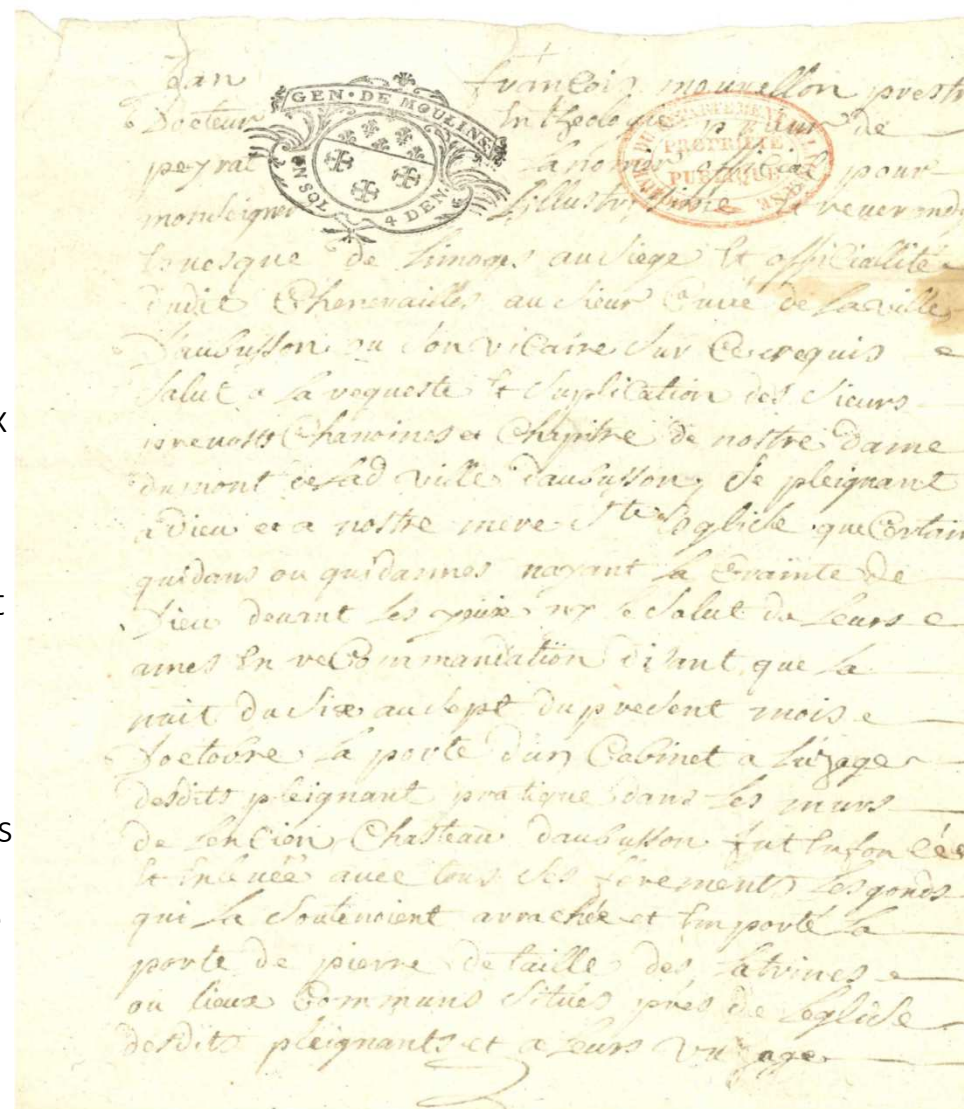 Jan françois mourellon prestre
Docteur En theologie prieur de
peyrat La nomer official pour
monseigneur Lillustrissime Et reverendis
Evesque de Limoges au siege Et officiallité
dudit Chenerailles au sieur Curé de la ville
Daubusson ou son vicaire sur Ce requis
Salut a la requeste Et suplication des sieurs
prevosts Chanoines et Chapitre de nostre Dame
dumont de lad ville Daubusson, se pleignant
a Dieu et a nostre mere Ste Eoglise que Certain
quidans ou quidannes nayant la Crainte de
Dieu devant les yeux ny le Salut de Leurs
ames En reCommandation disant que la
nuit du Six au Sept du present mois
Doctobre la porte dun Cabinet a Luzage
desdits pleignant pratique dans les murs
de Lencien Chasteau daubusson fut Enfoncée
Et Enlevée avec tous ses ferements les gonds
qui la Soutenoient arrachée et Emporté la
porte de pierre de taille des Latrines
ou lieux Communs Situés prés de Leglise
desdits pleignants et a Leurs Uzage
GEN · DE MOULINS
UN SOL
4 DEN.
DU DEPARTEMENT
PROPRIETE
PUBLIQUE